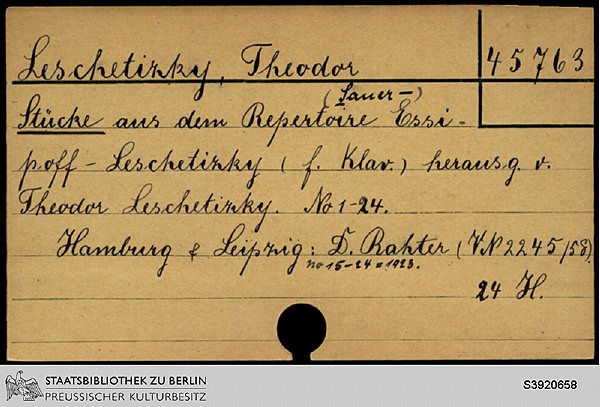 Leschetizky, Theodor
45763
(Sauer-)
Stücke aus dem Repertoire Essi-
poff-Leschetizky (f. Klav.) herausg. v.
Theodor Leschetizky. No 1-24.
Hamburg & Leipzig: D. Rahter (V.N 2245/58).
no 15-24 = 1923.
24 H.
STAATSBIBLIOTHEK ZU BERLIN
PREUSSISCHER KULTURBESITZ
S3920658